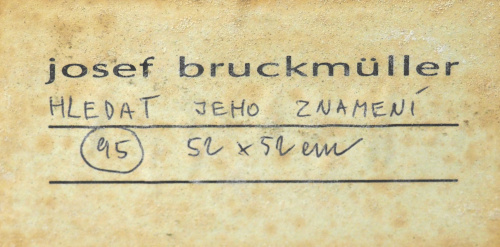 josef bruckmüller
HLEDAT JEHO ZNAMENÍ
95 52 x 52 cm